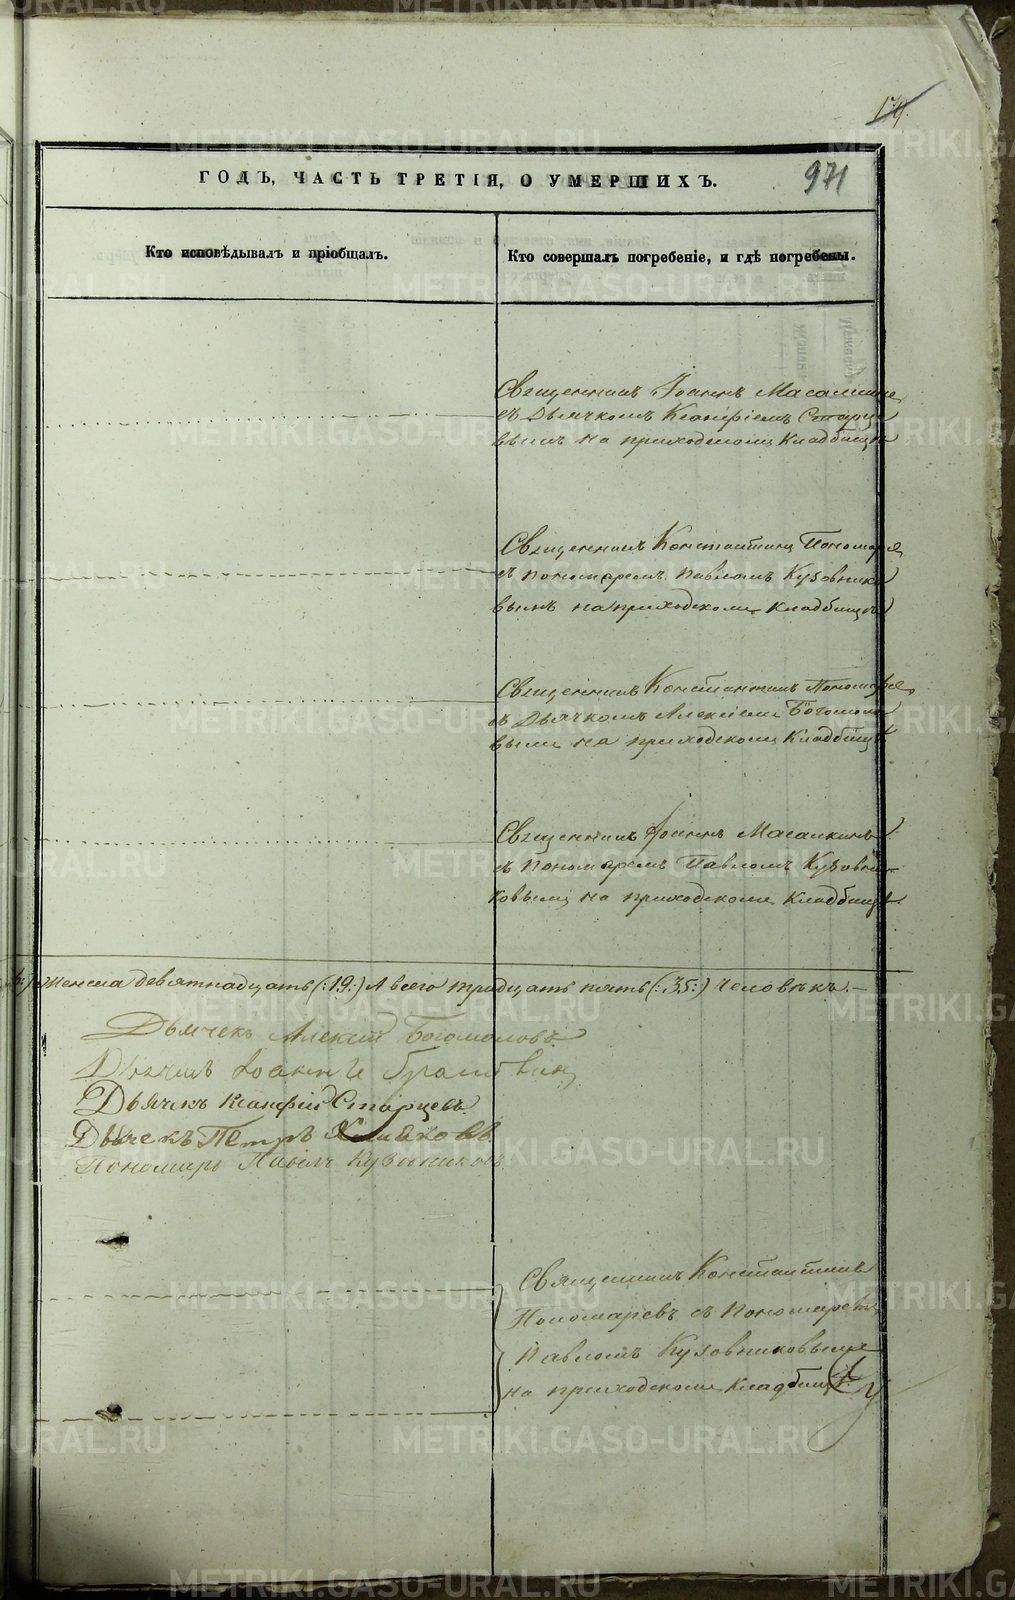 179.
ГОДЪ, ЧАСТЬ ТРЕТІЯ, О УМЕРШИХЪ.
971
Кто исповѣдывалъ и пріобщалъ.
Кто совершалъ погребеніе, и гдѣ погребены.
Священникъ Іоаннъ Масалкинъ
съ Дьячкомъ Ксанфіемъ Старце
вымъ на приходскомъ Кладбищѣ
Священникъ Константинъ Пономарев
съ пономаремъ Павломъ Кузовнико
вымъ на приходскомъ Кладбищѣ
Священникъ Константинъ Пономарев
съ Дьячкомъ Алексіемъ Богомоло
вымъ на приходскомъ Кладбищѣ
Священникъ Іоаннъ Масалкинъ
съ пономаремъ Павломъ Кузовни-
ковымъ на приходскомъ Кладбищѣ
женска девятнадцать (:19:) А всего тридцать пять (:35:) Человѣкъ.-
Дьячекъ Алексій Богомоловъ
Дьячекъ Іоаннъ
Дьячекъ Ксанфій Старцевъ
Дьячекъ Петръ Хомяковъ
Пономарь Павелъ Кузовниковъ
Священникъ Константинъ
Пономаревъ съ Пономаремъ
Павломъ Кузовниковымъ
на приходскомъ Кладбищѣ
METRIKI.GASO-URAL.RU